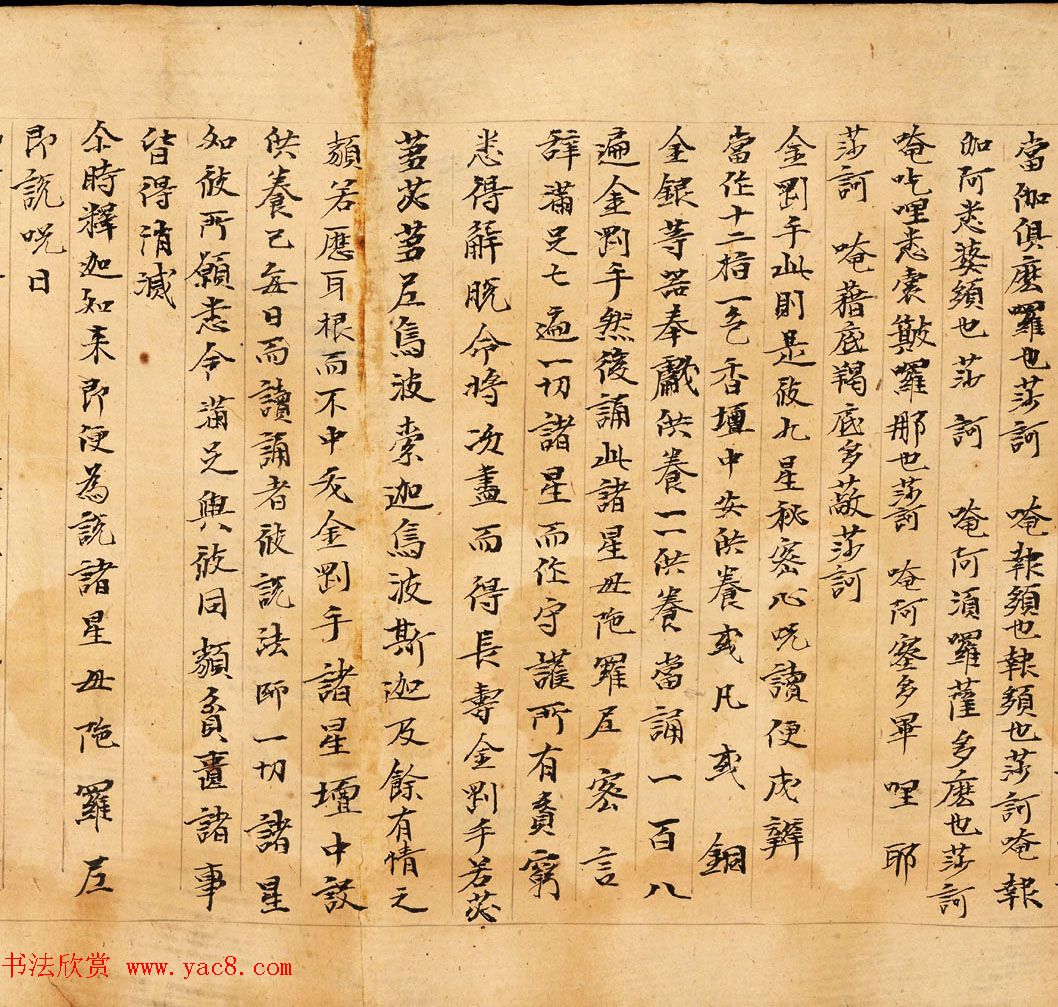 當伽俱麼囉也莎訶　唵報頞也報頞也莎訶唵報
伽阿悉婆頞也莎訶　唵阿湏囉薩多麼也莎訶
唵吃哩悉囊皽囉那也莎訶　唵阿蜜多畢哩耶
莎訶　唵藉底羯底多蔽莎訶
金剛手此則是彼九星秘密心呪讀便成辦
當作十二指一色香壇中安供養或凡或銅
金銀等器奉獻供養一一供養當誦一百八
遍金剛手然後誦此諸星母陁羅尼密言
辞滿足七遍一切諸星而作守護所有貧窮
悉得解脫命將次盡而得長壽金剛手若苾
蒭苾蒭尼烏波索迦烏波斯迦及餘有情之
類若歷耳根而不中夭金剛手諸星壇中設
供養已每日而讀誦者彼說法師一切諸星
如彼所願悉令滿足與彼同類貧匱諸事
皆得消滅
尒時釋迦如来即便為說諸星母陁羅尼
即說呪曰
书法欣赏 www.yac8.com